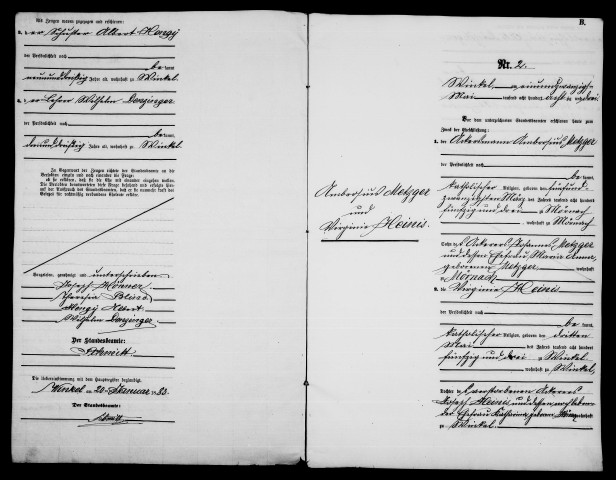 Als Zeugen waren zugezogen und erschienen:
3. der Schuster Albert Hengy
der Persönlichkeit nach
be kannt,
neununddreißig Jahre alt, wohnhaft zu Winkel
4. der Lehrer Wilhelm Denzinger
der Persönlichkeit nach
be kannt,
Jahre alt, wohnhaft zu Winkel
In Gegenwart der Zeugen richtete der Standesbeamte an die
Verlobten einzeln und nach einander die Frage:
ob sie erklären, daß sie die Ehe mit einander eingehen wollen.
Die Verlobten beantworteten diese Frage bejahend und erfolgte
hierauf der Ausspruch des Standesbeamten, daß er sie nunmehr kraft des
Gesetzes für rechtmäßig verbundene Eheleute erkläre.
Vorgelesen, genehmigt und unterschrieben
Joseph
Theresia
Hengy Albert
Wilhelm Denzinger
Der Standesbeamte:
Schmitt
Die Uebereinstimmung mit dem Hauptregister beglaubigt
Winkel am 20. Januar 83.
Der Standesbeamte:
Schmitt
Ambrosius Metzger
und
Virginie Heinis
B.
Nr. 2.
Winkel, am einundzwanzigsten
Mai tausend acht hundert acht
Vor dem unterzeichneten Standesbeamten erschienen heute zum
Zweck der Eheschließung:
1. der Ackersmann Ambrosius Metzger
der Persönlichkeit nach
be kannt,
katholischer Religion, geboren den fünfund-
zwanzigsten März des Jahres tausend acht hundert
fünfzig und drei zu Mörnach
, wohnhaft zu Mörnach
Sohn des Ackerers Johannes Metzger
und dessen Ehefrau Maria Anna,
geborenen Metzger wohnhaft
zu Mörnach
2. die Virginie Heinis
der Persönlichkeit nach
be kannt,
katholischer Religion, geboren den dritten
Mai des Jahres tausend acht hundert
fünfzig und drei zu Winkel
, wohnhaft zu Winkel,
Tochter des verstorbenen Ackerers
Joseph Heinis und dessen noch leben-
der Ehefrau Katharina, geborene
zu Winkel